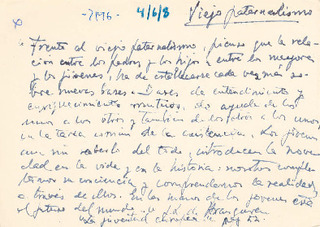 -7196-
4/6/8
Viejo paternalismo
Frente al viejo paternalismo, pienso que la rela-
ción entre los padres y los hijos, entre los mayores
y los jóvenes, ha de establecerse cada vez más so-
bre nuevas bases. Bases de entendimiento y
enriquecimiento mutuos, de ayuda de los
unos a los otros y también de los otros a los unos
en la tarea común de la existencia. Los jóvenes
aun sin saberlo del todo, introducen la nove-
dad en la vida y en la historia: nosotros
tomamos conciencia y comprendemos la realidad
a través de ellos. En las manos de los jóvenes está
el futuro del mundo. Aranguren
La juventud